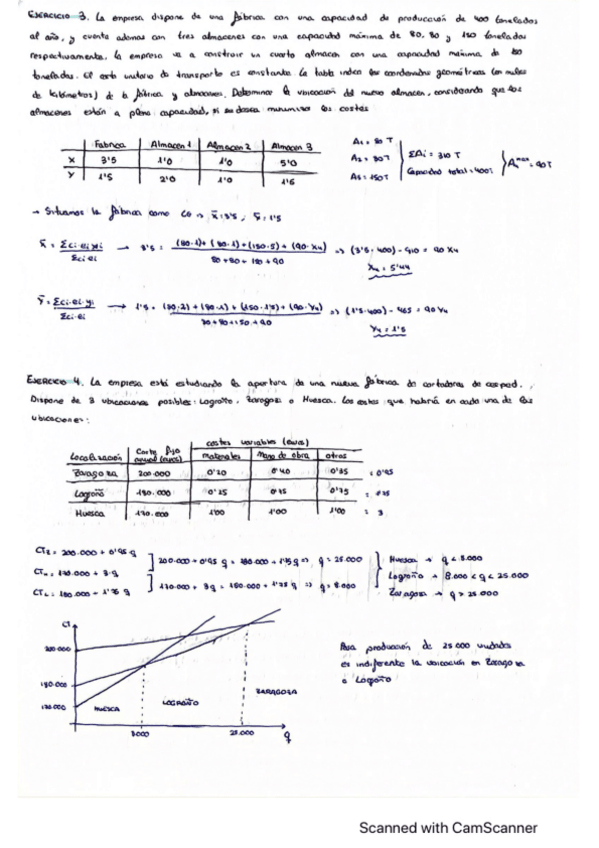 EJERCICIO 3. La empresa dispone de una fábrica con una capacidad de producción de 400 toneladas
al año, y cuenta además con tres almacenes con una capacidad máxima de 80, 80 y 150 toneladas
respectivamente. La empresa va a construir un cuarto almacen con una capacidad máxima de
toneladas. El coste unitario de transporte es constante. La tabla indica las coordenadas geométricas (en miles
de kilómetros) de la fábrica y almacenes. Determinar la ubicación del nuevo almacen, considerando que los
almacenes están a plena capacidad, si se desea minimizar los costes
Fabrica Almacen 1 Almacen 2 Almacen 3
X 3'5 1'0 1'0 5'0
Y 1'5 2'0 1'0
A1 = 80 T
A2 = 80 T
A3 = 150 T
ΣAi = 310 T
Capacidad total = 400 T
A4 max = 90 T
→ Situamos la fábrica como CG → x̄ = 3'5, ȳ = 1'5
x̄ = Σci·ei·xi / Σci·ei → 3'5 = (80·1) + (80·1) + (150·5) + (90·X4) / 80+80+150+90 ⇒ (3'5·400) - 910 = 90 X4
X4 = 5'44
ȳ = Σci·ei·yi / Σci·ei → 1'5 = (80·2) + (80·1) + (150·1'5) + (90·Y4) / 80+80+150+90 ⇒ (1'5·400) - 465 = 90 Y4
Y4 = 1'5
EJERCICIO 4. La empresa está estudiando la apertura de una nueva fábrica de cortadoras de cesped.
Dispone de 3 ubicaciones posibles: Logroño, Zaragoza o Huesca. Los costes que habría en cada una de las
ubicaciones:
costes variables (euros)
Localización Coste fijo anual (euros) materiales Mano de obra otros
Zaragoza 200.000 0'20 0'40 0'35 = 0'95
Logroño 180.000 0'25 0'75
Huesca 170.000 1'00 1'00 1'00 = 3
CTz = 200.000 + 0'95 q
CTH = 170.000 + 3 q
CTL = 180.000 + 1'75 q
200.000 + 0'95 q = 180.000 + 1'75 q ⇒ q = 25.000
170.000 + 3q = 180.000 + 1'75 q ⇒ q = 8.000
Huesca → q < 8.000
Logroño → 8.000 < q < 25.000
Zaragoza → q > 25.000
CT
200.000
180.000
170.000
HUESCA
LOGROÑO
ZARAGOZA
8000
25.000
q
Para producción de 25 000 unidades
es indiferente la ubicación en Zaragoza
o Logroño
Scanned with CamScanner